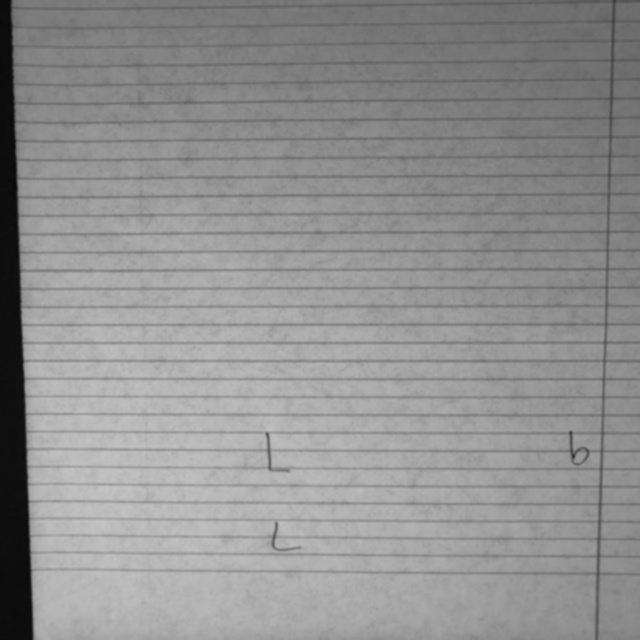 L b
L